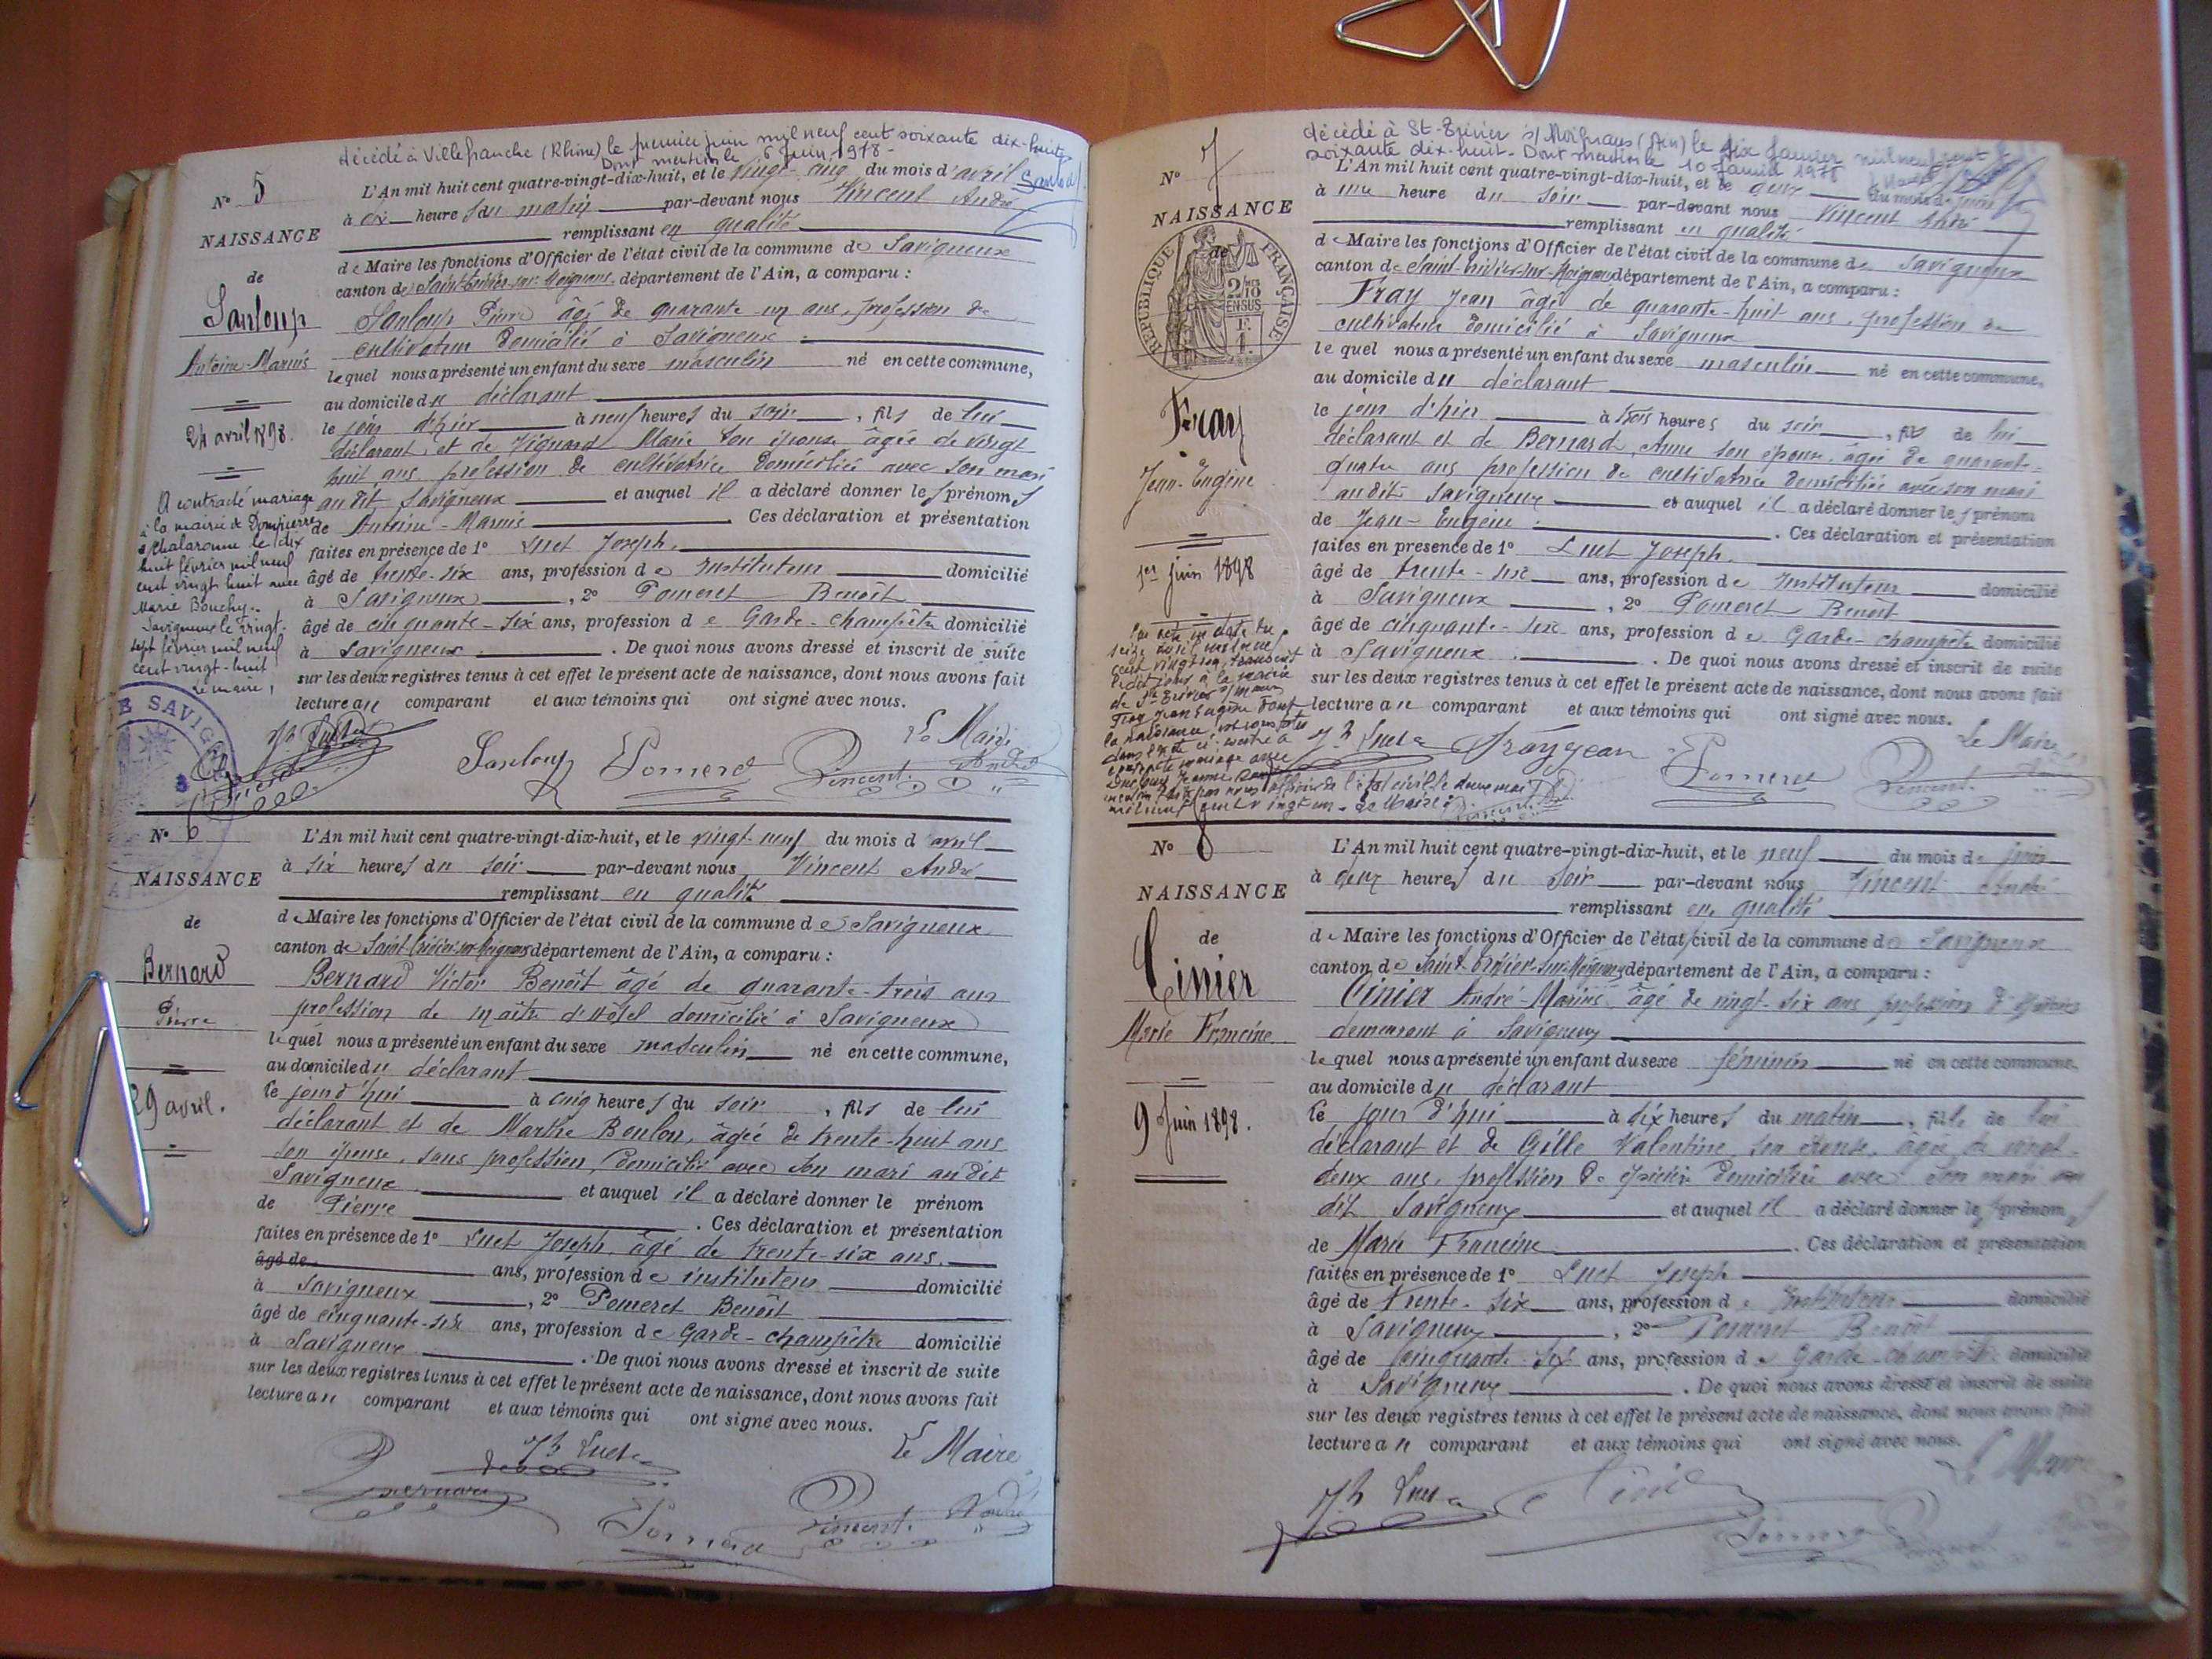 décédé à Villefranche (Rhône) le premier juin mil neuf cent soixante dix-huit
Dont mention le 6 juin 1978-
N° 5
L'An mil huit cent quatre-vingt-dix-huit, et le vingt-cinq du mois d'avril
à dix heures du matin par-devant nous Vincent André
NAISSANCE
remplissant en qualité
de Maire les fonctions d'Officier de l'état civil de la commune de Savigneux
de
canton de Saint-Trivier-sur-Moignans, département de l'Ain, a comparu :
Sanloup
Sanloup Pierre âgé de quarante-un ans, profession de
cultivateur domicilié à Savigneux
Antoine-Marius
lequel nous a présenté un enfant du sexe masculin né en cette commune,
au domicile du déclarant
24 avril 1898.
le jour d'hier à neuf heures du soir, fils de lui
déclarant, et de Vignard Marie son épouse âgée de vingt
huit ans profession de cultivatrice domiciliée avec son mari
au dit Savigneux et auquel il a déclaré donner les prénoms
de Antoine-Marius. Ces déclaration et présentation
faites en présence de 1° Luet Joseph.
âgé de trente-six ans, profession de Instituteur domicilié
à Savigneux, 2° Pomeret Benoît
âgé de cinquante-six ans, profession de Garde-champêtre domicilié
à Savigneux. De quoi nous avons dressé et inscrit de suite
sur les deux registres tenus à cet effet le présent acte de naissance, dont nous avons fait
lecture au comparant et aux témoins qui ont signé avec nous.
A contracté mariage
à la mairie de Dompierre
s/Chalaronne le dix
huit février mil neuf
cent vingt huit avec
Marie Bouchy.
Savigneux le vingt-
sept février mil neuf
cent vingt-huit
Le maire,
Le Maire
Jh Luet Sanloup Pomeret Vincent André
N° 6
L'An mil huit cent quatre-vingt-dix-huit, et le vingt-neuf du mois d'avril
à six heures du soir par-devant nous Vincent André
NAISSANCE
remplissant en qualité
de
de Maire les fonctions d'Officier de l'état civil de la commune de Savigneux
canton de Saint-Trivier-sur-Moignans département de l'Ain, a comparu :
Bernard
Bernard Victor Benoît âgé de quarante-trois ans
Pierre
profession de maître d'hôtel domicilié à Savigneux
lequel nous a présenté un enfant du sexe masculin né en cette commune,
au domicile du déclarant
29 avril.
le jourd'hui à cinq heures du soir, fils de lui
déclarant et de Marthe Boulon, âgée de trente-huit ans
son épouse, sans profession, domiciliée avec son mari au dit
Savigneux et auquel il a déclaré donner le prénom
de Pierre. Ces déclaration et présentation
faites en présence de 1° Luet Joseph, âgé de trente-six ans.
âgé de ans, profession de instituteur domicilié
à Savigneux, 2° Pomeret Benoît
âgé de cinquante-six ans, profession de Garde-champêtre domicilié
à Savigneux. De quoi nous avons dressé et inscrit de suite
sur les deux registres tenus à cet effet le présent acte de naissance, dont nous avons fait
lecture au comparant et aux témoins qui ont signé avec nous.
Le Maire
Jh Luet
Bernard Pomeret Vincent André
décédé à St-Trivier s/Moignans (Ain) le dix janvier mil neuf cent
soixante dix-huit. Dont mention le 10 Janvier 1978
N° 7
L'An mil huit cent quatre-vingt-dix-huit, et le deux du mois de juin
à une heure du soir par-devant nous Vincent André
NAISSANCE
remplissant en qualité
de
RÉPUBLIQUE FRANÇAISE
2/10 EN SUS
de Maire les fonctions d'Officier de l'état civil de la commune de Savigneux
canton de Saint-Trivier-sur-Moignans département de l'Ain, a comparu :
Fray Jean âgé de quarante-huit ans, profession de
cultivateur domicilié à Savigneux
lequel nous a présenté un enfant du sexe masculin né en cette commune,
au domicile du déclarant
Fray
Jean-Eugène
le jour d'hier à trois heures du soir, fils de lui
déclarant et de Bernard, Anne son épouse, âgée de quarante-
quatre ans profession de cultivatrice domiciliée avec son mari
audit Savigneux et auquel il a déclaré donner les prénom
de Jean-Eugène. Ces déclaration et présentation
faites en présence de 1° Luet Joseph.
1er juin 1898
âgé de trente-six ans, profession de Instituteur domicilié
à Savigneux, 2° Pomeret Benoît
âgé de cinquante-six ans, profession de Garde-champêtre domicilié
à Savigneux. De quoi nous avons dressé et inscrit de suite
sur les deux registres tenus à cet effet le présent acte de naissance, dont nous avons fait
lecture au comparant et aux témoins qui ont signé avec nous.
Par acte en date du
seize avril mil neuf
cent vingt un, transcrit
à la mairie
de St Trivier s/Moignans
Fray Jean Eugène dont
la naissance est constatée
dans l'acte ci-contre a
contracté mariage avec
Le Maire
Jh Luet Fray Jean Pomeret Vincent
N° 8
L'An mil huit cent quatre-vingt-dix-huit, et le neuf du mois de juin
à deux heures du soir par-devant nous Vincent André
NAISSANCE
remplissant en qualité
de
de Maire les fonctions d'Officier de l'état civil de la commune de Savigneux
canton de Saint-Trivier-sur-Moignans département de l'Ain, a comparu :
Cinier
Cinier André-Marius âgé de vingt-six ans profession d'épicier
Marie Francine
demeurant à Savigneux
lequel nous a présenté un enfant du sexe féminin né en cette commune,
au domicile du déclarant
9 Juin 1898.
le jour d'hui à dix heures du matin, fille de lui
déclarant et de Gille Valentine son épouse, âgée de vingt-
deux ans, profession de épicière domiciliée avec son mari au
dit Savigneux et auquel il a déclaré donner les prénoms
de Marie Francine. Ces déclaration et présentation
faites en présence de 1° Luet Joseph
âgé de trente-six ans, profession de Instituteur domicilié
à Savigneux, 2° Pomeret Benoît
âgé de cinquante-six ans, profession de Garde-champêtre domicilié
à Savigneux. De quoi nous avons dressé et inscrit de suite
sur les deux registres tenus à cet effet le présent acte de naissance, dont nous avons fait
lecture au comparant et aux témoins qui ont signé avec nous.
Le Maire
Jh Luet Cinier
Pomeret Vincent